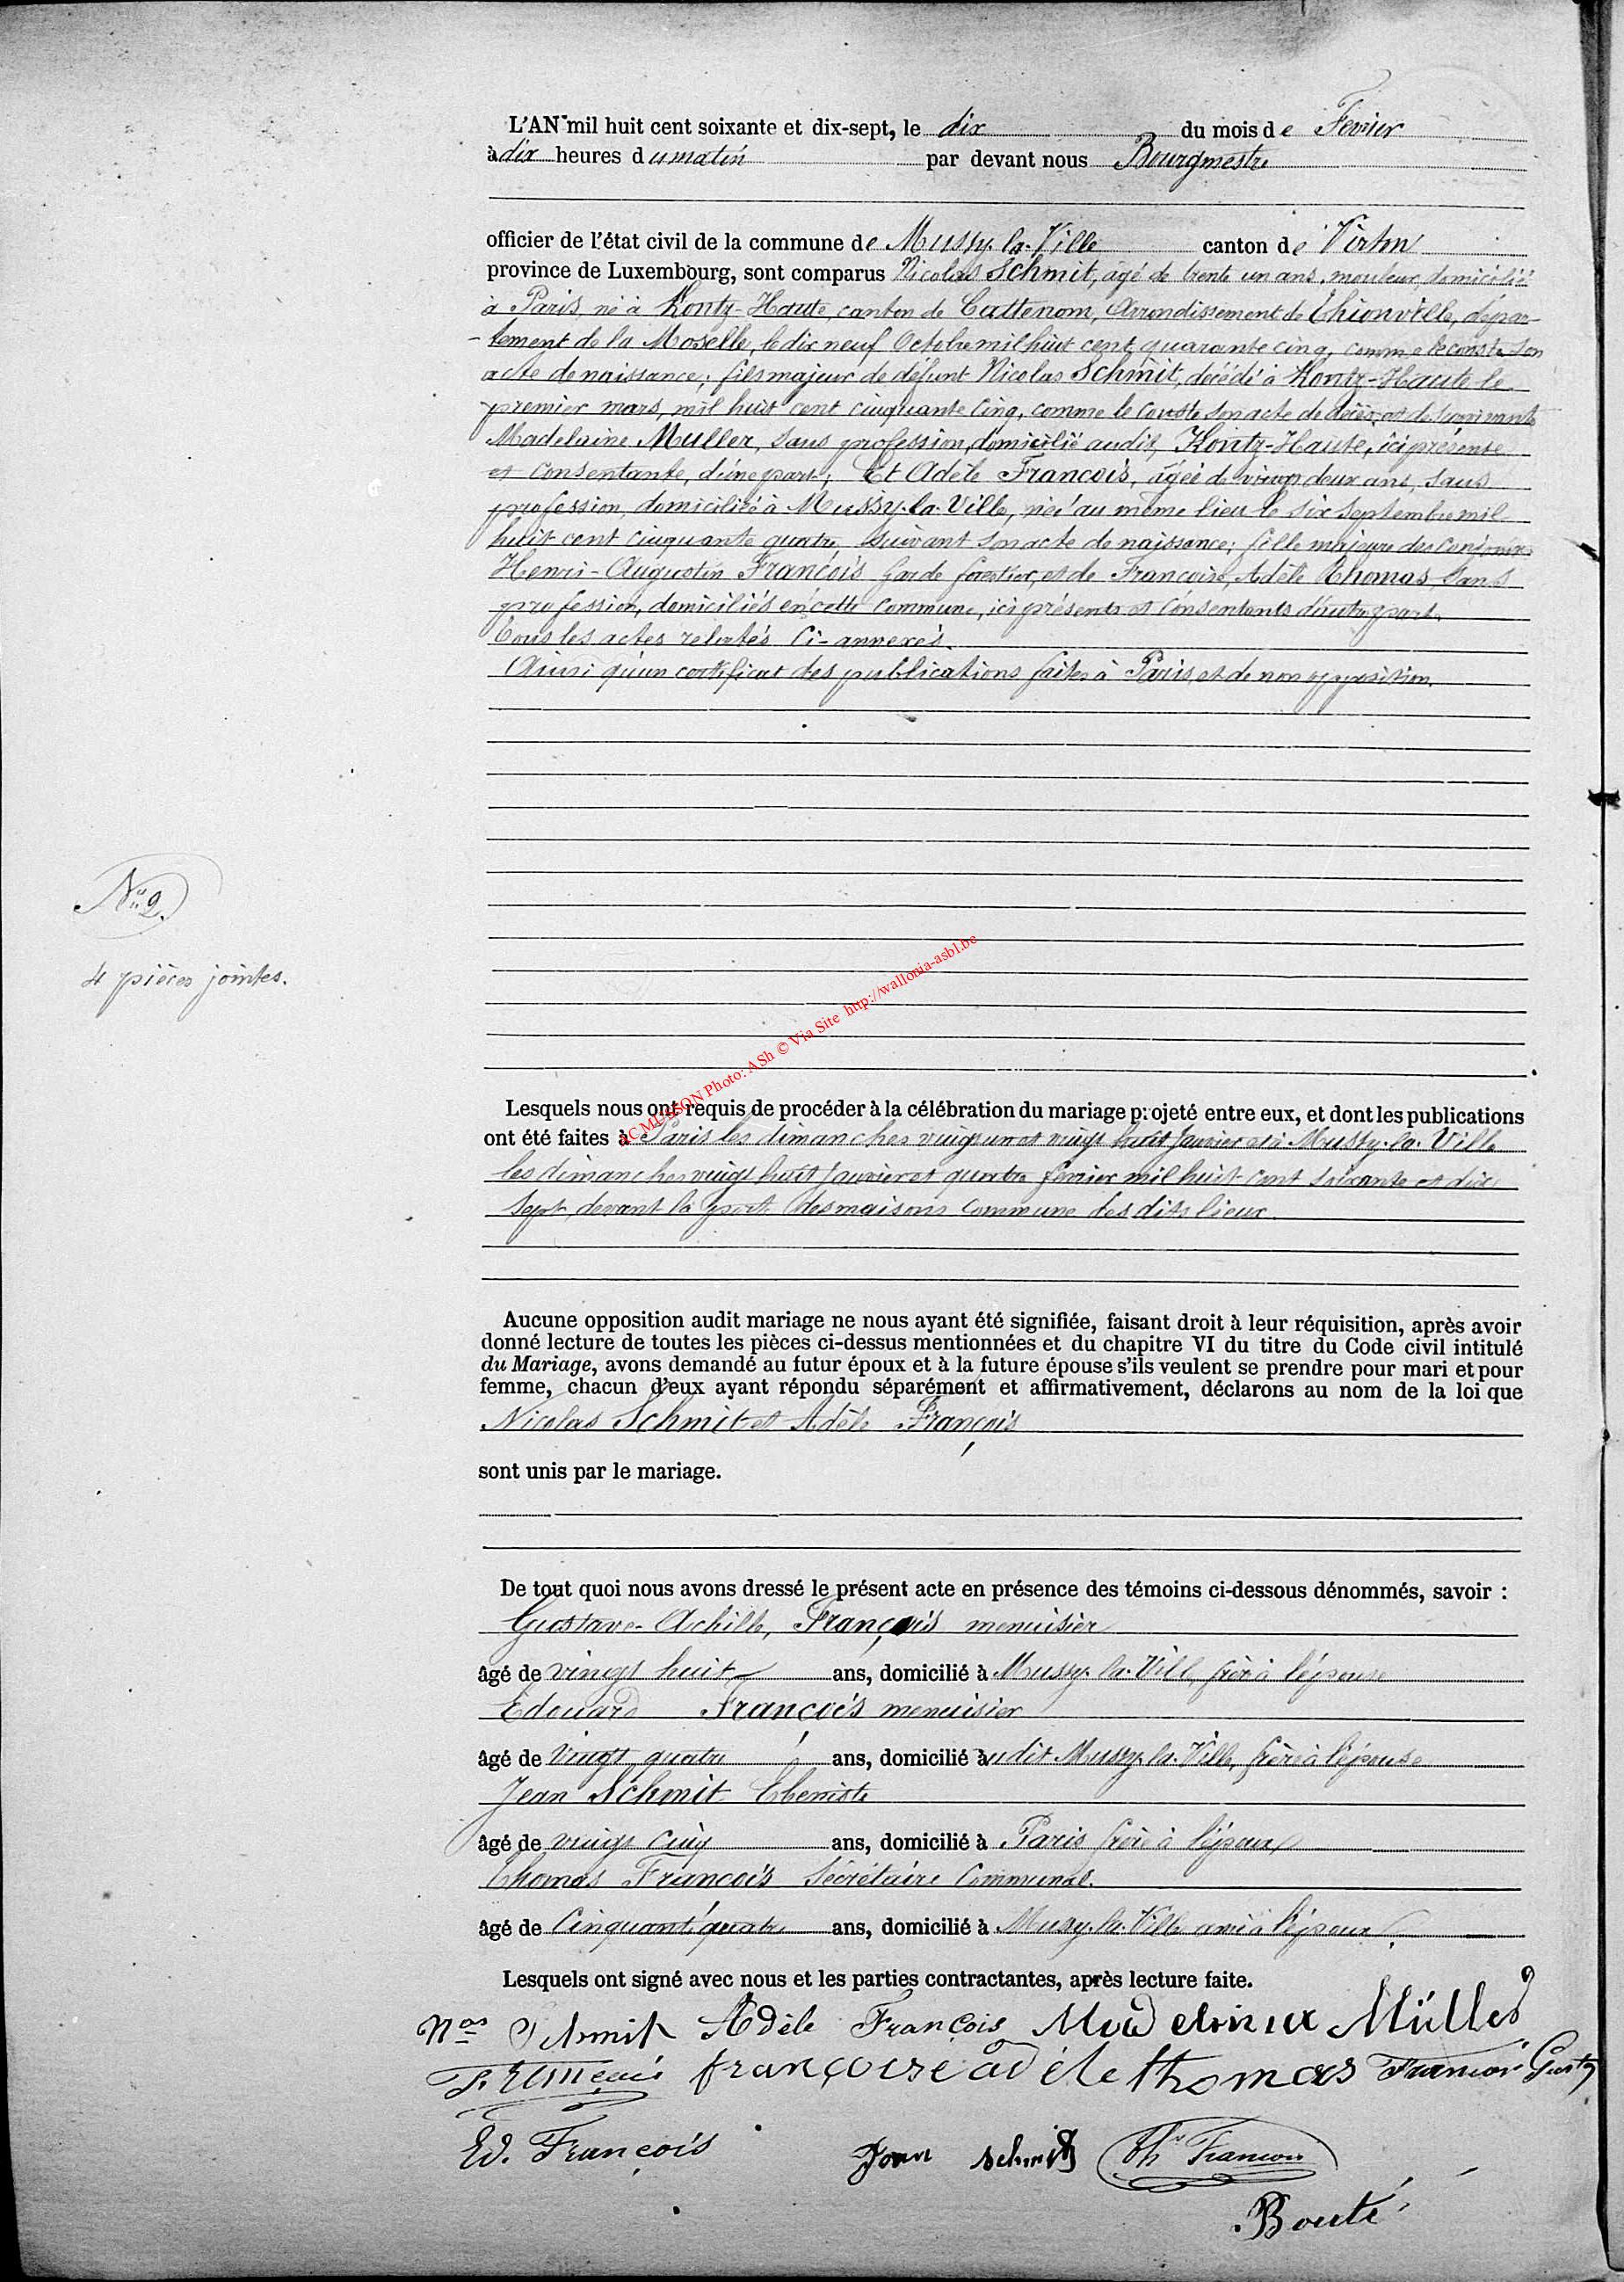 L'AN mil huit cent soixante et dix-sept, le dix du mois de Fevrier
à dix heures du matin par devant nous Bourgmestre
officier de l'état civil de la commune de Mussy-la-Ville canton de Virton
province de Luxembourg, sont comparus Nicolas Schmit, âgé de trente un ans, mouleur, domicilié
à Paris, né à Kontz-Haute, canton de Cattenom, Arrondissement de Thionville, dépar-
-tement de la Moselle, le dix neuf Octobre mil huit cent quarante cinq, comme le conste son
acte de naissance; fils majeur de défunt Nicolas Schmit, décédé à Kontz-Haute le
premier mars, mil huit cent cinquante cinq, comme le conste son acte de décès, et de
Madelaine Muller, sans profession, domicilié audit Kontz-Haute, ici présente
et consentante, d'une part; Et Adèle François, âgée de vingt deux ans, sans
profession, domiciliée à Mussy-la-Ville, née au même lieu le six Septembre mil
huit cent cinquante quatre, suivant son acte de naissance; fille majeure des conjoints
Henri-Augustin François Garde forestier, et de Françoise, Adèle Thomas, sans
profession, domiciliés en cette commune, ici présents et consentants d'autre part.
Tous les actes relatés ci-annexés.
Ainsi qu'un certificat des publications faites à Paris, et de non opposition.
N° 2.
4 pièces jointes.
AC MUSSON Photo: ASh © Via Site http://wallonia-asbl.be
Lesquels nous ont requis de procéder à la célébration du mariage projeté entre eux, et dont les publications
ont été faites à Paris les dimanches vingt un et vingt huit Janvier et à Mussy-la-Ville
les dimanches vingt huit Janvier et quatre fevrier mil huit cent soixante et dix
sept, devant la porte des maisons commune des dits lieux.
Aucune opposition audit mariage ne nous ayant été signifiée, faisant droit à leur réquisition, après avoir
donné lecture de toutes les pièces ci-dessus mentionnées et du chapitre VI du titre du Code civil intitulé
du Mariage, avons demandé au futur époux et à la future épouse s'ils veulent se prendre pour mari et pour
femme, chacun d'eux ayant répondu séparément et affirmativement, déclarons au nom de la loi que
Nicolas Schmit et Adèle François
sont unis par le mariage.
De tout quoi nous avons dressé le présent acte en présence des témoins ci-dessous dénommés, savoir :
Gustave-Achille, François menuisier
âgé de vingt huit ans, domicilié à Mussy-la-Ville, frère à l'épouse
Edouard François menuisier
âgé de vingt quatre ans, domicilié audit Mussy-la-Ville, frère à l'épouse
Jean Schmit Ebeniste
âgé de vingt cinq ans, domicilié à Paris frère à l'époux
Thomas François Sécrétaire Communal.
âgé de Cinquante quatre ans, domicilié à Mussy-la-Ville ami à l'époux
Lesquels ont signé avec nous et les parties contractantes, après lecture faite.
Nas Schmit Adèle François Müller
François françoise adéle thomas François Gust
Ed. François Jean Schmit Th François
Bouté